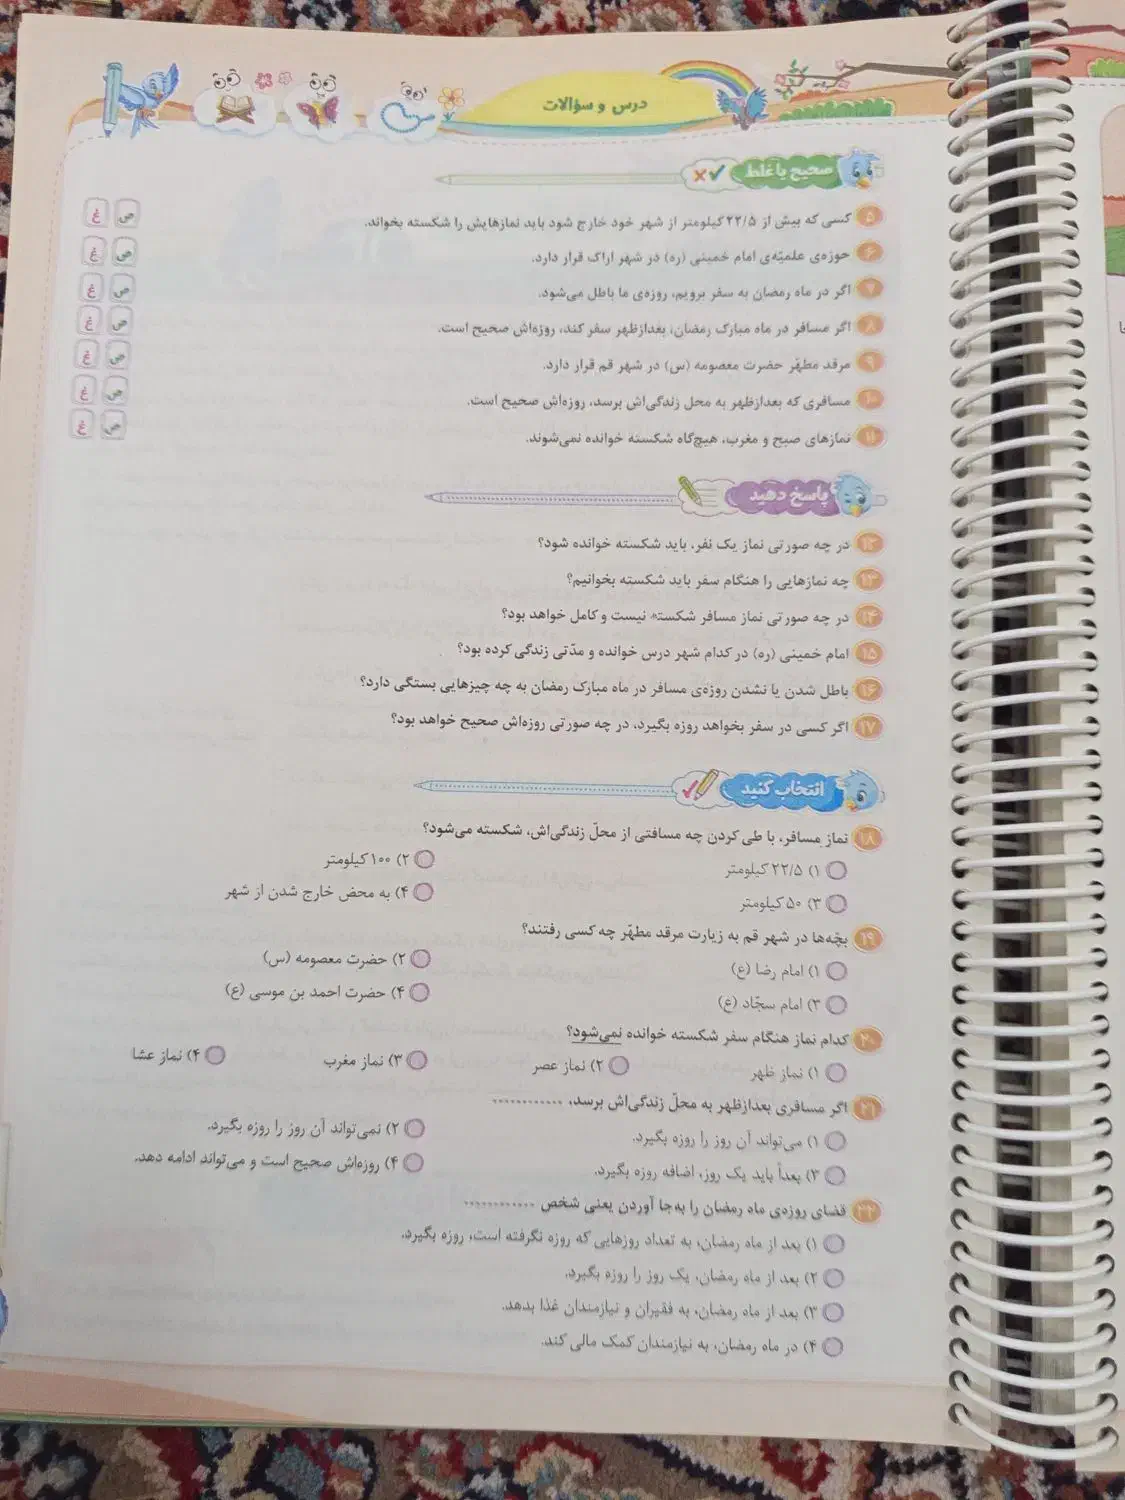 درس و سؤالات
صحیح یا غلط
۵ کسی که بیش از ۲۲/۵ کیلومتر از شهر خود خارج شود باید نمازهایش را شکسته بخواند. ص غ
۶ حوزه‌ی علمیّه‌ی امام خمینی (ره) در شهر اراک قرار دارد. ص غ
۷ اگر در ماه رمضان به سفر برویم، روزه‌ی ما باطل می‌شود. ص غ
۸ اگر مسافر در ماه مبارک رمضان، بعدازظهر سفر کند، روزه‌اش صحیح است. ص غ
۹ مرقد مطهّر حضرت معصومه (س) در شهر قم قرار دارد. ص غ
۱۰ مسافری که بعدازظهر به محل زندگی‌اش برسد، روزه‌اش صحیح است. ص غ
۱۱ نمازهای صبح و مغرب، هیچ‌گاه شکسته خوانده نمی‌شوند. ص غ
پاسخ دهید
۱۲ در چه صورتی نماز یک نفر، باید شکسته خوانده شود؟
۱۳ چه نمازهایی را هنگام سفر باید شکسته بخوانیم؟
۱۴ در چه صورتی نماز مسافر شکسته نیست و کامل خواهد بود؟
۱۵ امام خمینی (ره) در کدام شهر درس خوانده و مدّتی زندگی کرده بود؟
۱۶ باطل شدن یا نشدن روزه‌ی مسافر در ماه مبارک رمضان به چه چیزهایی بستگی دارد؟
۱۷ اگر کسی در سفر بخواهد روزه بگیرد، در چه صورتی روزه‌اش صحیح خواهد بود؟
انتخاب کنید
۱۸ نماز مسافر، با طی کردن چه مسافتی از محلّ زندگی‌اش، شکسته می‌شود؟
۱) ۲۲/۵ کیلومتر ۲) ۱۰۰ کیلومتر
۳) ۵۰ کیلومتر ۴) به محض خارج شدن از شهر
۱۹ بچّه‌ها در شهر قم به زیارت مرقد مطهّر چه کسی رفتند؟
۱) امام رضا (ع) ۲) حضرت معصومه (س)
۳) امام سجّاد (ع) ۴) حضرت احمد بن موسی (ع)
۲۰ کدام نماز هنگام سفر شکسته خوانده نمی‌شود؟
۱) نماز ظهر ۲) نماز عصر ۳) نماز مغرب ۴) نماز عشا
۲۱ اگر مسافری بعدازظهر به محلّ زندگی‌اش برسد، ............
۱) می‌تواند آن روز را روزه بگیرد. ۲) نمی‌تواند آن روز را روزه بگیرد.
۳) بعداً باید یک روز، اضافه روزه بگیرد. ۴) روزه‌اش صحیح است و می‌تواند ادامه دهد.
۲۲ قضای روزه‌ی ماه رمضان را به‌جا آوردن یعنی شخص ............
۱) بعد از ماه رمضان، به تعداد روزهایی که روزه نگرفته است، روزه بگیرد.
۲) بعد از ماه رمضان، یک روز را روزه بگیرد.
۳) بعد از ماه رمضان، به فقیران و نیازمندان غذا بدهد.
۴) در ماه رمضان، به نیازمندان کمک مالی کند.